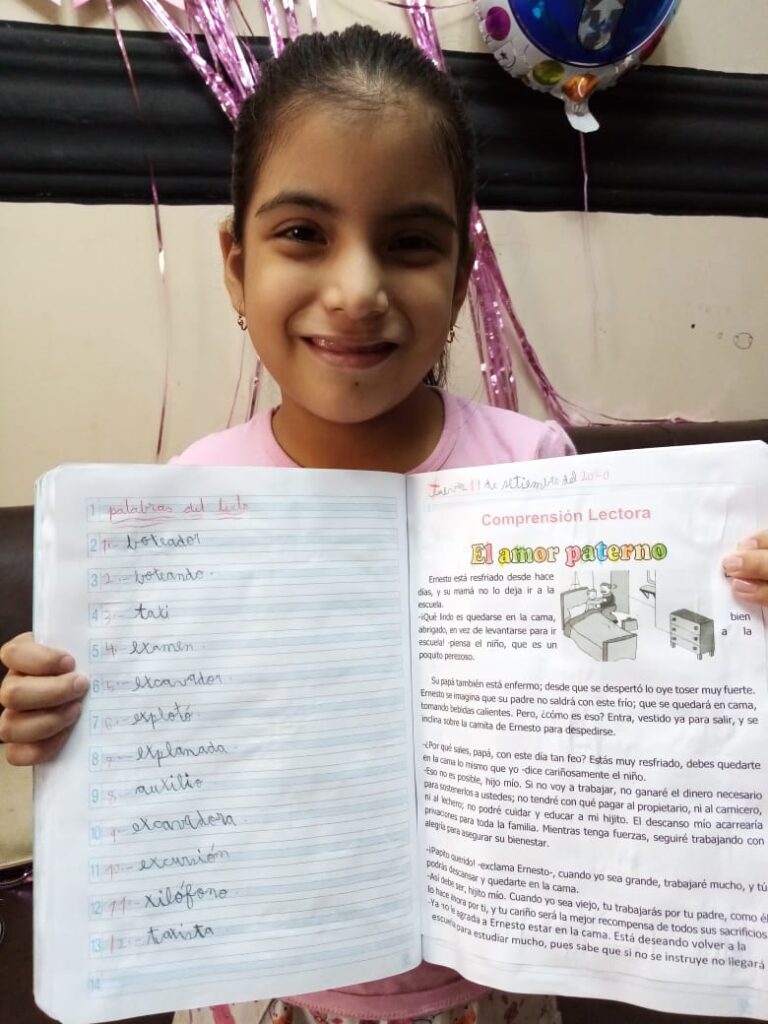 1 palabras del texto
2 1.- boxeador
3 2.- boxeando.
4 3.- taxi
5 4.- examen.
6 5.- excavador.
7 6.- explotó.
8 7.- explanada.
9 8.- auxilio
10 9.- excavadora
11 10.- excursión
12 11.- xilófono
13 12.- taxista
14
Jueves 17 de setiembre del 2020
Comprensión Lectora
El amor paterno
Ernesto está resfriado desde hace
días, y su mamá no lo deja ir a la
escuela.
-¡Qué lindo es quedarse en la cama, bien
abrigado, en vez de levantarse para ir a la
escuela! -piensa el niño, que es un
poquito perezoso.
Su papá también está enfermo; desde que se despertó lo oye toser muy fuerte.
Ernesto se imagina que su padre no saldrá con este frío; que se quedará en cama,
tomando bebidas calientes. Pero, ¿cómo es eso? Entra, vestido ya para salir, y se
inclina sobre la camita de Ernesto para despedirse.
-¿Por qué sales, papá, con este día tan feo? Estás muy resfriado, debes quedarte
en la cama lo mismo que yo -dice cariñosamente el niño.
-Eso no es posible, hijo mío. Si no voy a trabajar, no ganaré el dinero necesario
para sostenerlos a ustedes; no tendré con qué pagar al propietario, ni al carnicero,
ni al lechero; no podré cuidar y educar a mi hijito. El descanso mío acarrearía
privaciones para toda la familia. Mientras tenga fuerzas, seguiré trabajando con
alegría para asegurar su bienestar.
-¡Papito querido! -exclama Ernesto-, cuando yo sea grande, trabajaré mucho, y tú
podrás descansar y quedarte en la cama.
-Así debe ser, hijito mío. Cuando yo sea viejo, tu trabajarás por tu padre, como él
lo hace ahora por ti, y tu cariño será la mejor recompensa de todos sus sacrificios
-Ya no le agrada a Ernesto estar en la cama. Está deseando volver a la
escuela para estudiar mucho, pues sabe que si no se instruye no llegará